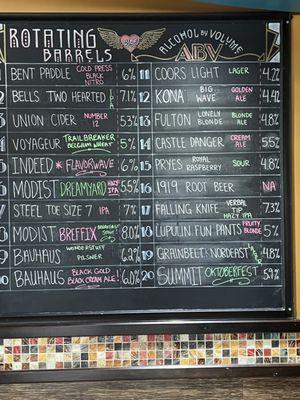 ROTATING BARRELS
ALCOHOL BY VOLUME
ABV
BENT PADDLE COLD PRESS BLACK NITRO 6%
BELLS TWO HEARTED IPA 7.1%
UNION CIDER NUMBER 12 5.3%
VOYAGEUR TRAILBREAKER BELGIUM WHEAT 5%
INDEED * FLAVORWAVE 6%
MODIST DREAMYARD HAZY IPA 6.5%
STEEL TOE SIZE 7 IPA 7%
MODIST BREFFIX BREAKFAST STOUT 8.0%
BAUHAUS WONDERSTUFF PILSNER 6.2%
BAUHAUS BLACK GOLD BLACK CREAM ALE! 6.0%
11 COORS LIGHT LAGER 4.22
12 KONA BIG WAVE GOLDEN ALE 4.42
13 FULTON LONELY BLONDE BLONDE ALE 4.8
14 CASTLE DANGER CREAM ALE 5.5%
15 PRYES ROYAL RASPBERRY SOUR 4.8%
16 1919 ROOT BEER NA
17 FALLING KNIFE VERBAL TIP HAZY IPA 7.3%
18 LUPULIN FUN PANTS FRUITY BLONDE 5%
19 GRAINBELT NORDEAST 4.8%
20 SUMMIT OKTOBERFEST 5.9%